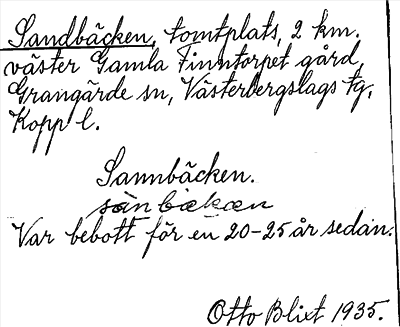 Sandbäcken, tomtplats, 2 km.
väster Gamla Finntorpet gård,
Grangärde sn, Västerbergslags tg,
Kopp l.
Sannbäcken.
Var bebott för en 20-25 år sedan.
Otto Blixt 1935.